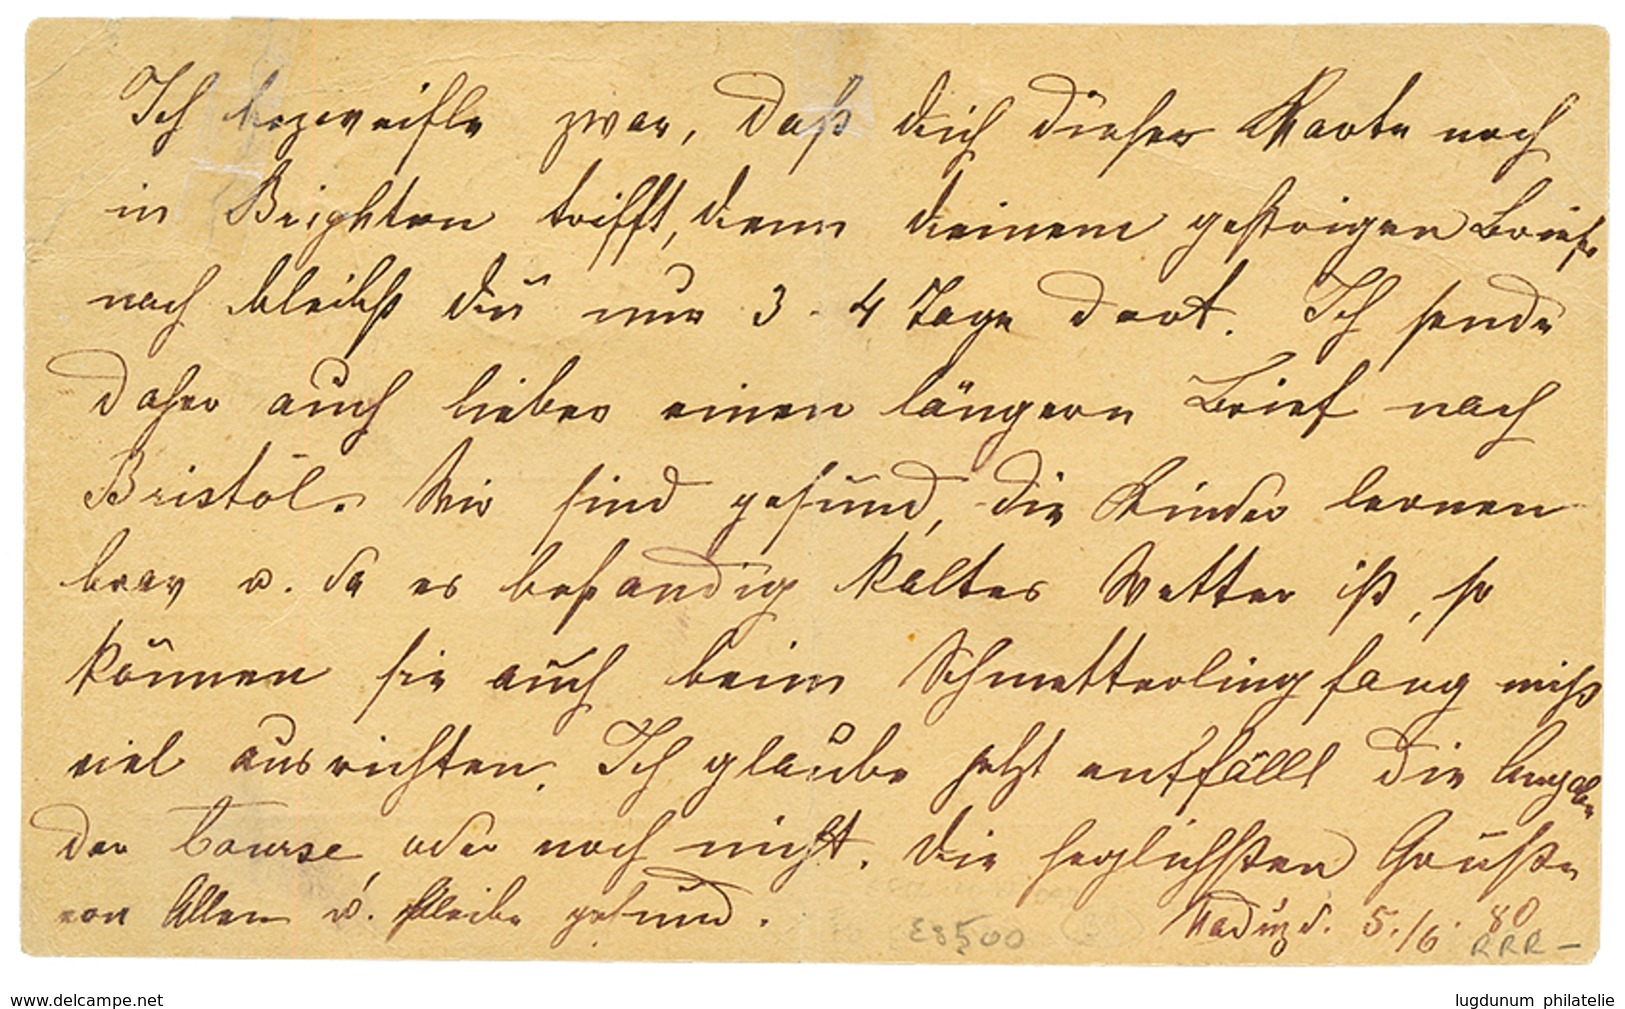 Ich bezweifle zwar, daß dich diese Karte noch
in Brighton trifft, denn deinem gestrigen Briefe
nach bleibst du nur 3-4 Tage dort. Ich sende
daher auch lieber einen längern Brief nach
Bristol. Wir sind gesund, die Kinder lernen
brav u. da es beständig kaltes Wetter ist, so
können sie auch beim Schmetterlingfang nicht
viel ausrichten. Ich glaube jetzt entfällt die Angabe
der Course, oder noch nicht. Die herzlichsten Grüße
von Allen u. bleibe gesund. Vaduz d. 5./6. 80
E8500 RRR-
www.delcampe.net lugdunum philatelie